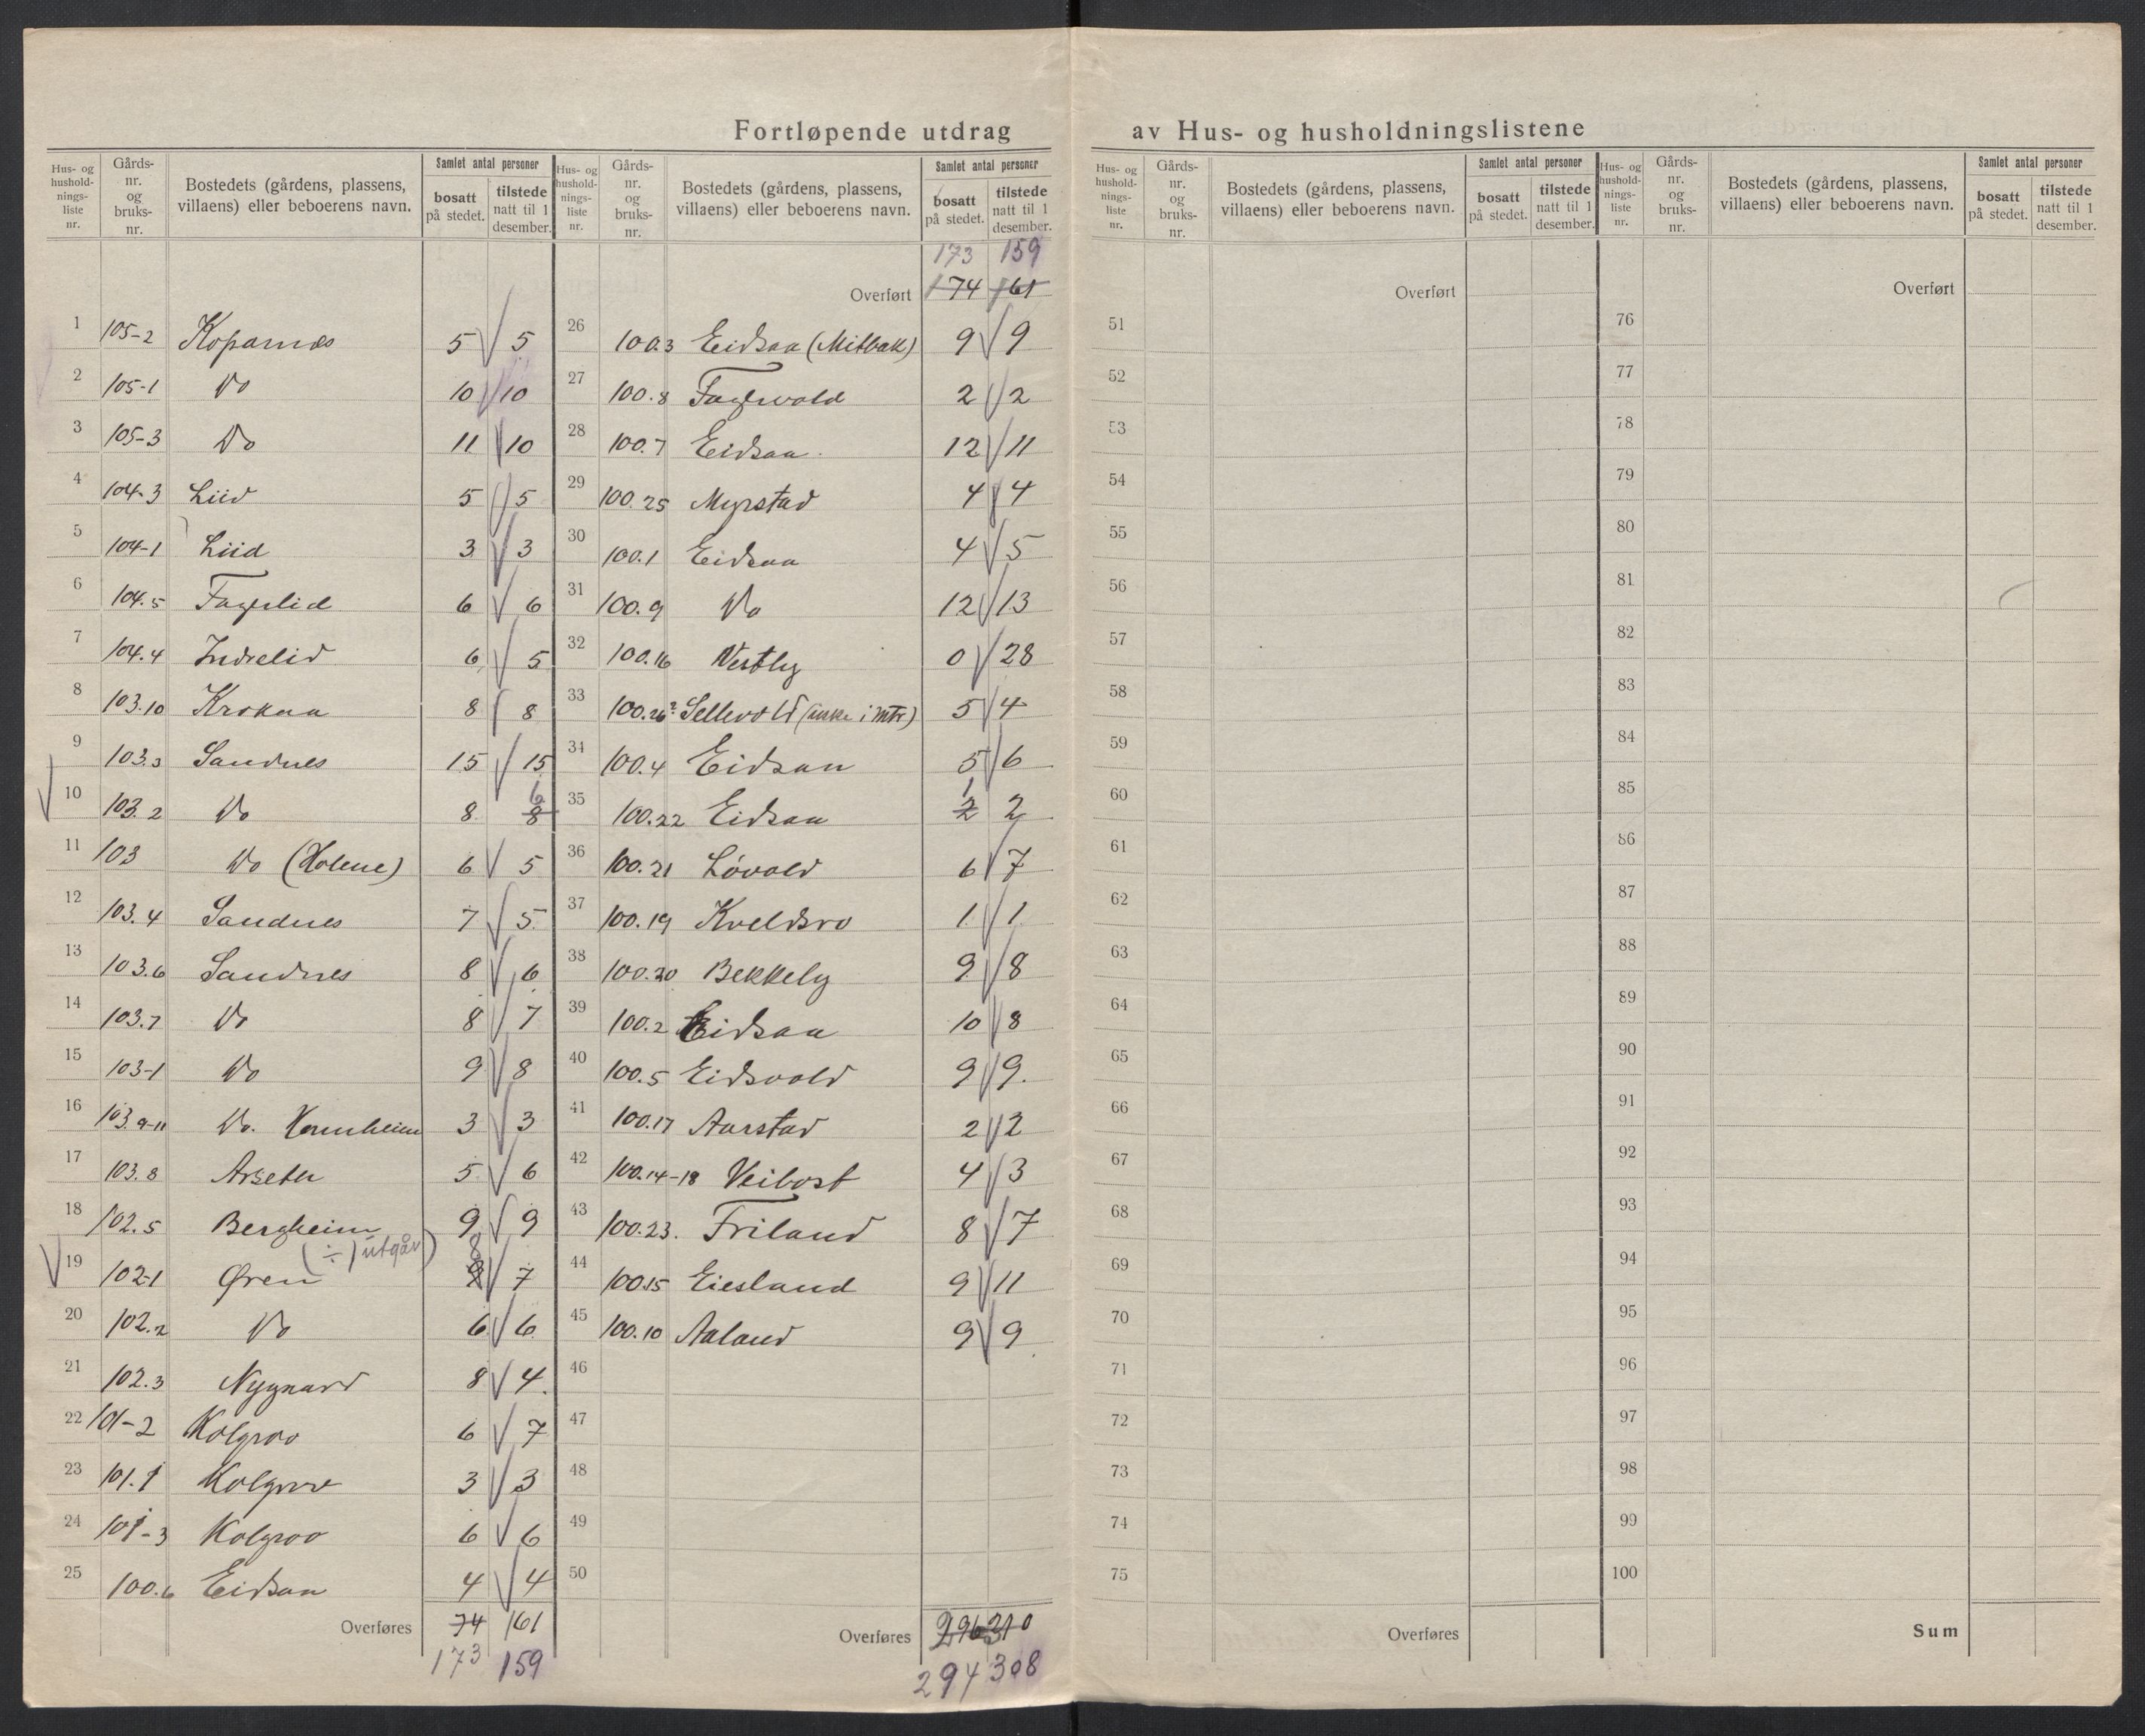 Fortløpende utdrag av Hus- og husholdningslistene
Hus- og husholdnings-liste nr. Gårds-nr. og bruks-nr. Bostedets (gårdens, plassens, villaens) eller beboerens navn. Samlet antal personer bosatt på stedet. tilstede natt til 1 desember.
1 105-2 Koparnes 5 5
2 105-1 Do 10 10
3 105-3 Do 11 10
4 104-3 Liid 5 5
5 104-1 Liid 3 3
6 104.5 Fagerlid 6 6
7 104.4 Indrelid 6 5
8 103.10 Krokaa 8 8
9 103.3 Sandnes 15 15
10 103.2 Do 8 8 6
11 103 Do (Holene) 6 5
12 103.4 Sandnes 7 5
13 103.6 Sandnes 8 6
14 103.7 Do 8 7
15 103-1 Do 9 8
16 103.9-11 Do. 3 3
17 103.8 Arseth 5 6
18 102.5 Bergheim 9 9
(÷) utgår)
19 102-1 Øren 8 7
20 102.2 Do 6 6
21 102.3 Nygaard 8 4
22 101-2 Kolgrov 6 7
23 101.1 Kolgrov 3 3
24 101-3 Kolgrov 6 6
25 100.6 Eidsaa 4 4
Overføres 74 161
173 159
Hus- og husholdnings-liste nr. Gårds-nr. og bruks-nr. Bostedets (gårdens, plassens, villaens) eller beboerens navn. Samlet antal personer bosatt på stedet. tilstede natt til 1 desember.
173 159
Overført 174 161
26 100.3 Eidsaa (Mitbak) 9 9
27 100.8 Fagervold 2 2
28 100.7 Eidsaa 12 11
29 100.25 Myrstad 4 4
30 100.1 Eidsaa 4 5
31 100.9 Do 12 13
32 100.16 Vestly 0 28
33 100.26? Sellevold (ikke i mtr) 5 4
34 100.4 Eidsaa 5 6
35 100.22 Eidsaa 2 1 2
36 100.21 Løvold 6 7
37 100.19 Kveldsro 1 1
38 100.20 Bekkely 9 8
39 100.2 Eidsaa 10 8
40 100.5 Eidsvold 9 9.
41 100.17 Aarstad 2 2
42 100.14-18 Veibost 4 3
43 100.23. Friland 8 7
44 100.15 Eiesland 9 11
45 100.10 Aaland 9 9
46
47
48
49
50
Overføres 296 310
294 308
Hus- og husholdnings-liste nr. Gårds-nr. og bruks-nr. Bostedets (gårdens, plassens, villaens) eller beboerens navn. Samlet antal personer bosatt på stedet. tilstede natt til 1 desember.
Overført
51
52
53
54
55
56
57
58
59
60
61
62
63
64
65
66
67
68
69
70
71
72
73
74
75
Overføres
Hus- og husholdnings-liste nr. Gårds-nr. og bruks-nr. Bostedets (gårdens, plassens, villaens) eller beboerens navn. Samlet antal personer bosatt på stedet. tilstede natt til 1 desember.
Overført
76
77
78
79
80
81
82
83
84
85
86
87
88
89
90
91
92
93
94
95
96
97
98
99
100
Sum